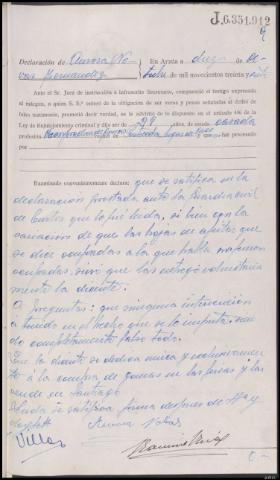 J.6.351.942
Declaración de Aurora No-
En Arzúa a diez de
de mil novecientos treinta y
Ante el Sr. Juez de instrucción é infrascrito Secretario, compareció el testigo expresado
al márgen, a quien S. S.ª enteró de la obligación de ser veraz y penas señaladas al delito de
falso testimonio, prometió decir verdad, se le advierte de lo dispuesto en el artículo 446 de la
Ley de Enjuiciamiento criminal y dijo ser de años, de estado casada
profesión no ha procesado
por
Examinado convenientemente declaró: que se ratifica en la
declaración prestada ante la Guardia civil
de que le fué leida, si bien con la
variación de que las hojas de
se dice ocupadas a la que habla no fueron
ocupadas, sino que las entregó voluntaria
mente la dicente.
A preguntas: que ninguna intervención
a tenido en el hecho que se le imputa, sien
do completamente falso todo.
Que la dicente se dedica única y exclusivamen
te á la compra de en las ferias y las
vende en Santiago
Leida se ratifica firma despues de S. Sª y
doy fe
Aurora
Ramiro